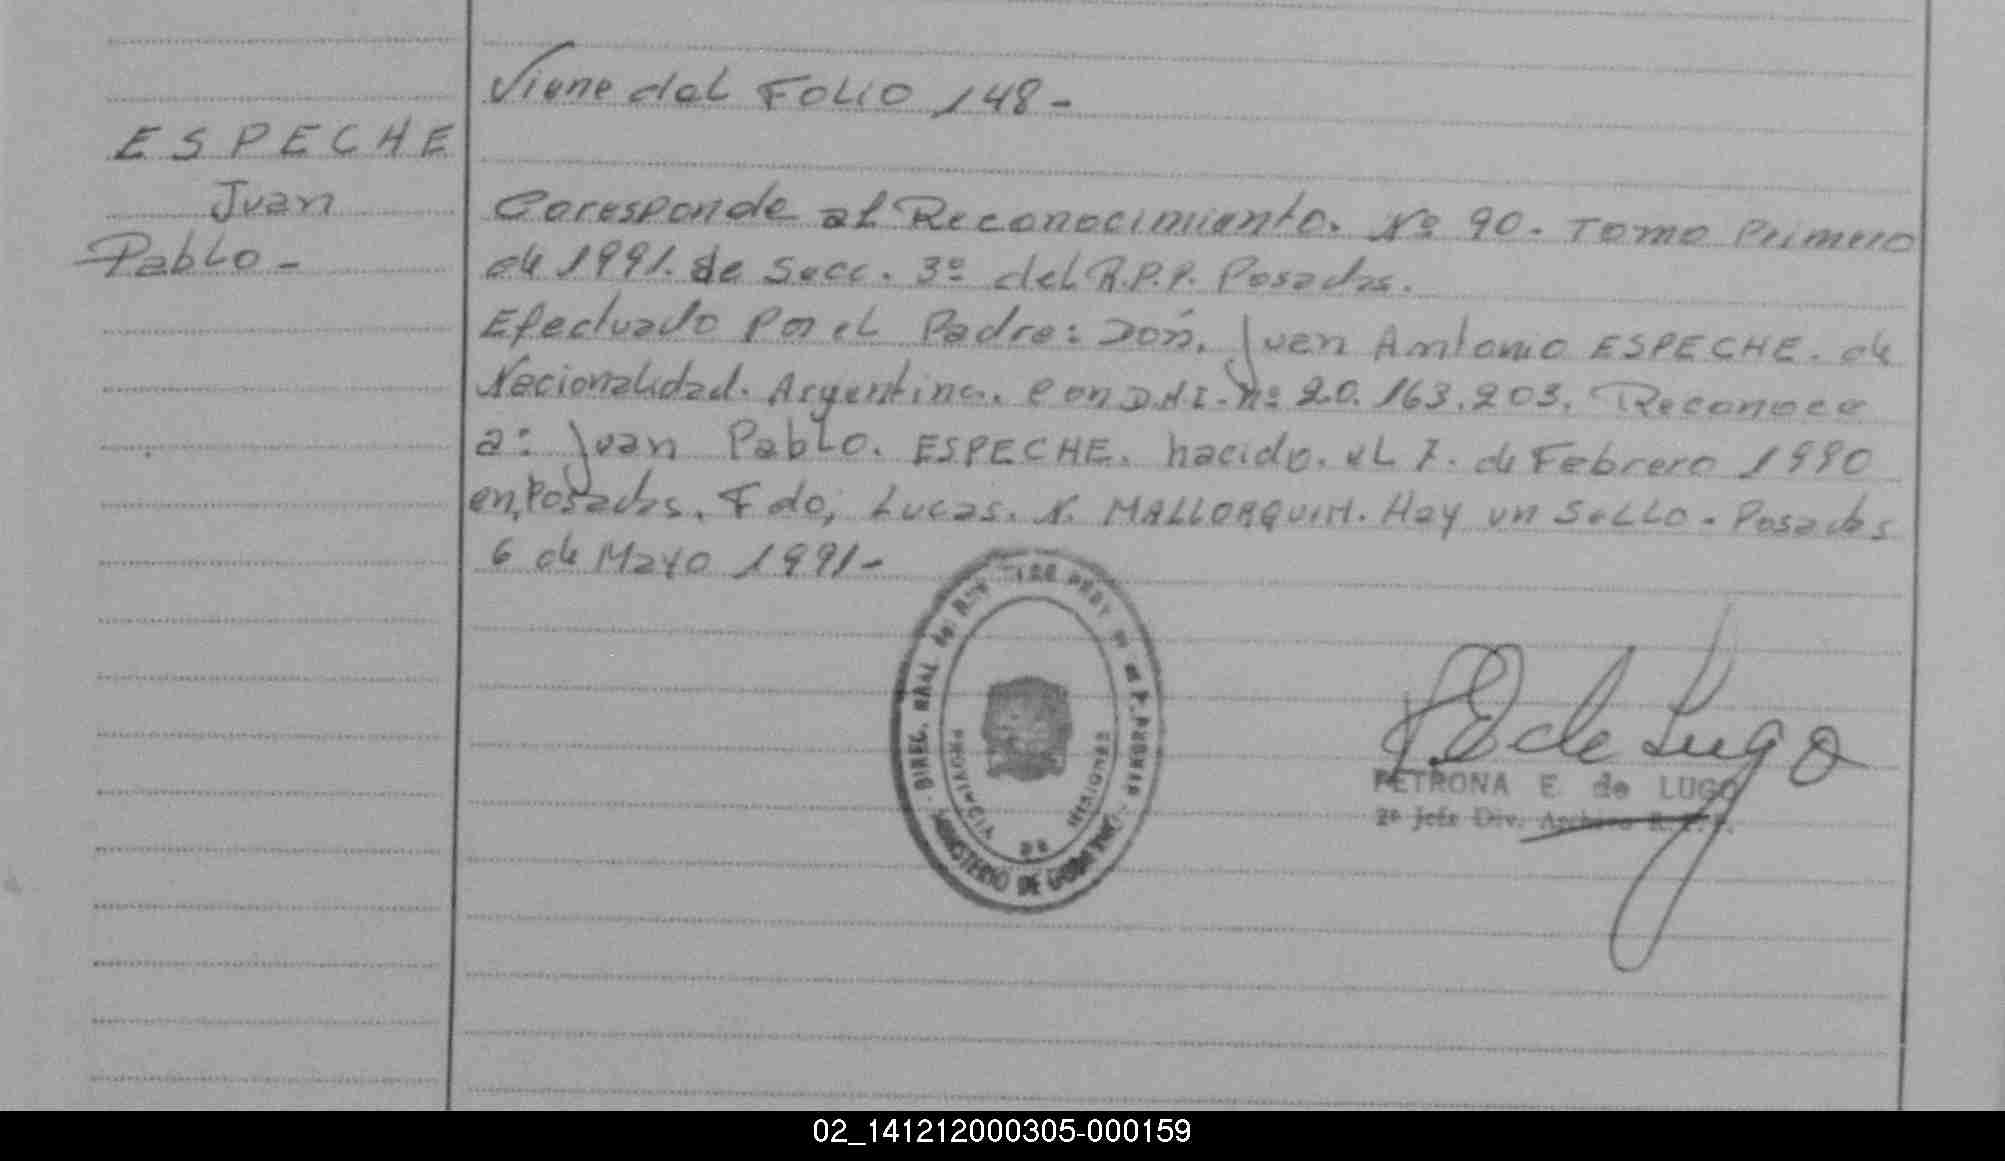 Viene del FOLIO 148-
ESPECHE
Juan
Pablo-
Coresponde al Reconocimiento. Nº 90. Tomo Primero
de 1991. de Secc. 3º del R.P.P. Posadas.
Efectuado Por el Padre: Don. Juan Antonio ESPECHE. de
Nacionalidad. Argentina. Con D.N.I. nº 20.163.203. Reconoce
a: Juan Pablo. ESPECHE. nacido. el 7. de Febrero 1990
en, Posadas. Fdo, Lucas. N. MALLORQUIN. Hay un SELLO. Posadas
6 de Mayo 1991-
DIREC. GRAL de P. PERSONAS
MINISTERIO DE GOBIERNO
PROVINCIA DE MISIONES
P E de Lugo
PETRONA E. de LUGO
2º Jefe Div. Archivo R.P.P.
02_141212000305-000159